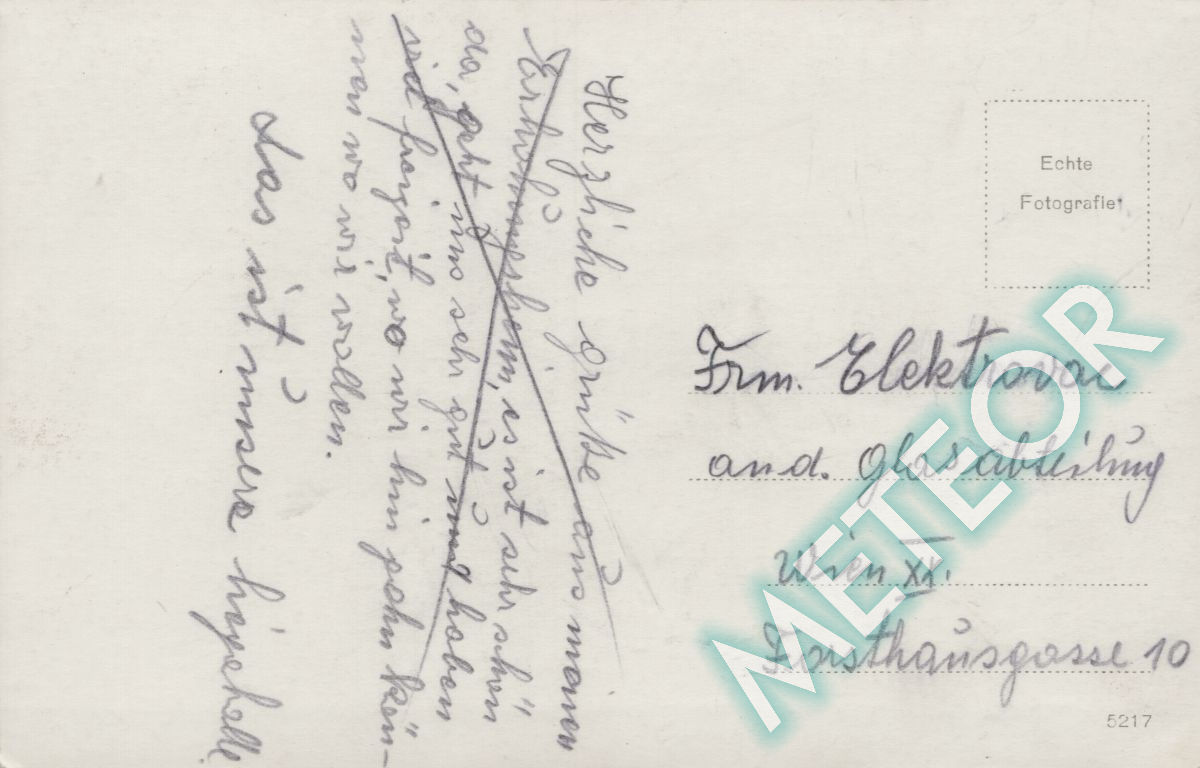 Herzliche grüße aus meinen
Erholungsheim, es ist sehr schön
da, geht uns sehr gut und haben
viel freizeit, wo wir hin gehn kön-
nen wo wir wollen.
Das ist unsere
Echte
Fotografie
Frm. Elektrovac
an d. Glasabteilung
Wien XX.
Forsthausgasse 10
5217
METEOR